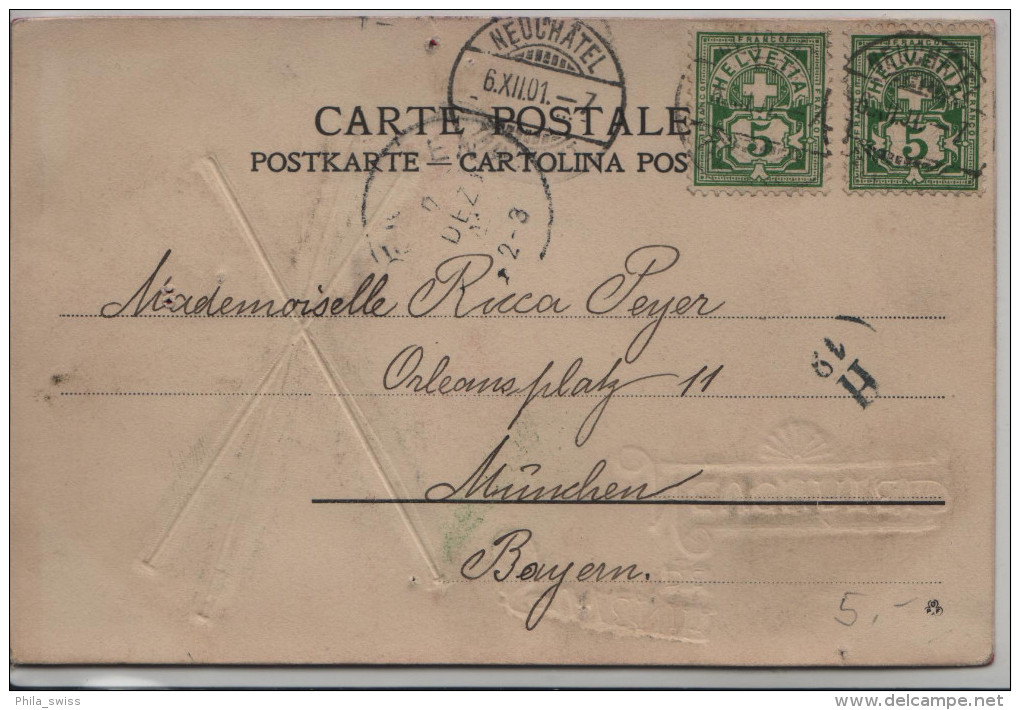 NEUCHÂTEL
6.XII.01.-7
FRANCO
HELVETIA
5
FRANCO
HELVETIA
5
CARTE POSTALE
POSTKARTE – CARTOLINA POS
DEZ
2-3
Mademoiselle Ricca Peyer
Orleansplatz 11
München
Bayern.
19
H
5.-
Phila_swiss
www.delcampe.net